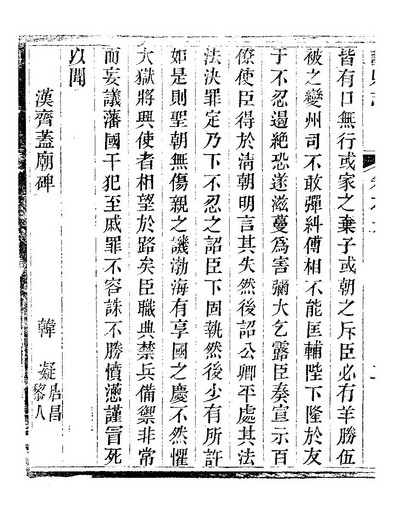 皆有口無行或家之棄子或朝之斥臣必有羊勝伍
被之變州司不敢彈糾傅相不能匡輔陛下隆於友
于不忍遏絕恐遂滋蔓爲害彌大乞露臣奏宣示百
僚使臣得於淸朝明言其失然後詔公卿平處其法
法決罪定乃下不忍之詔臣下固執然後少有所許
如是則聖朝無傷親之譏渤海有享國之慶不然懼
大獄將興使者相望於路矣臣職典禁兵備禦非常
而妄議藩國干犯至戚罪不容誅不勝憤懣謹冒死
以聞
漢齊蓋廟碑 韓凝居昌黎人